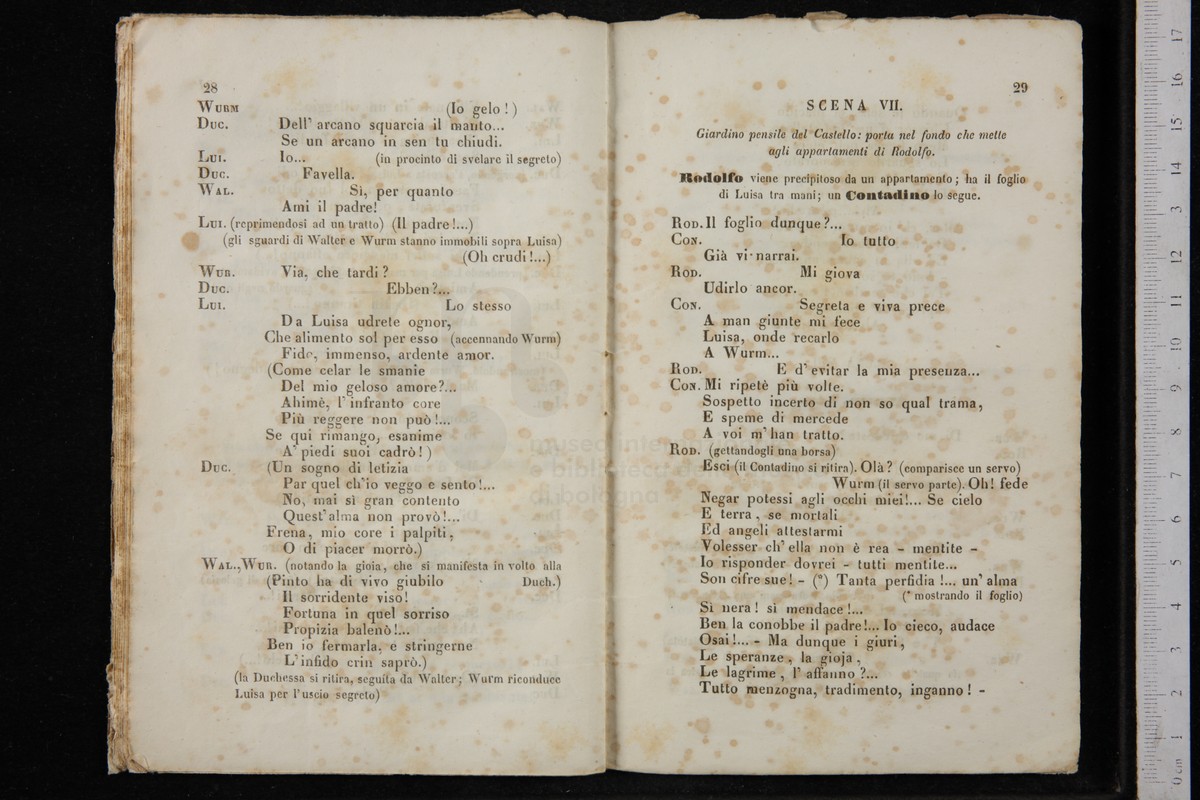 28
WURM (Io gelo!)
DUC. Dell' arcano squarcia il manto...
Se un arcano in sen tu chiudi.
LUI. Io... (in procinto di svelare il segreto)
DUC. Favella.
WAL. Sì, per quanto
Ami il padre!
LUI. (reprimendosi ad un tratto) (Il padre!...)
(gli sguardi di Walter e Wurm stanno immobili sopra Luisa)
(Oh crudi!...)
WUR. Via, che tardi?
DUC. Ebben?...
LUI. Lo stesso
Da Luisa udrete ognor,
Che alimento sol per esso (accennando Wurm)
Fido, immenso, ardente amor.
(Come celar le smanie
Del mio geloso amore?...
Ahimè, l' infranto core
Più reggere non può!...
Se qui rimango, esanime
A' piedi suoi cadrò!)
DUC. (Un sogno di letizia
Par quel ch'io veggo e sento!...
No, mai sì gran contento
Quest'alma non provò!...
Frena, mio core i palpiti,
O di piacer morrò.)
WAL., WUR. (notando la gioia, che si manifesta in volto alla
(Pinto ha di vivo giubilo Duch.)
Il sorridente viso!
Fortuna in quel sorriso
Propizia balenò!...
Ben io fermarla, e stringerne
L'infido crin saprò.)
(la Duchessa si ritira, seguita da Walter; Wurm riconduce
Luisa per l'uscio segreto)
29
SCENA VII.
Giardino pensile del Castello: porta nel fondo che mette
agli appartamenti di Rodolfo.
Rodolfo viene precipitoso da un appartamento; ha il foglio
di Luisa tra mani; un Contadino lo segue.
ROD. Il foglio dunque?...
CON. Io tutto
Già vi narrai.
ROD. Mi giova
Udirlo ancor.
CON. Segreta e viva prece
A man giunte mi fece
Luisa, onde recarlo
A Wurm...
ROD. E d' evitar la mia presenza...
CON. Mi ripetè più volte.
Sospetto incerto di non so qual trama,
E speme di mercede
A voi m' han tratto.
ROD. (gettandogli una borsa)
Esci (il Contadino si ritira). Olà? (comparisce un servo)
Wurm (il servo parte). Oh! fede
Negar potessi agli occhi miei!... Se cielo
E terra, se mortali
Ed angeli attestarmi
Volesser ch' ella non è rea - mentite -
Io risponder dovrei - tutti mentite...
Son cifre sue! - (*) Tanta perfidia!... un' alma
(* mostrando il foglio)
Sì nera! sì mendace!...
Ben la conobbe il padre!... Io cieco, audace
Osai!... - Ma dunque i giuri,
Le speranze, la gioja,
Le lagrime, l' affanno?...
Tutto menzogna, tradimento, inganno! -
museo inter
e biblioteca de
di bologna